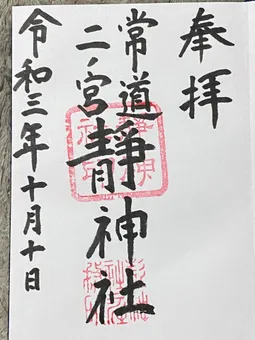 奉拝
常道
二ノ宮
靜神社
令和三年十月十日